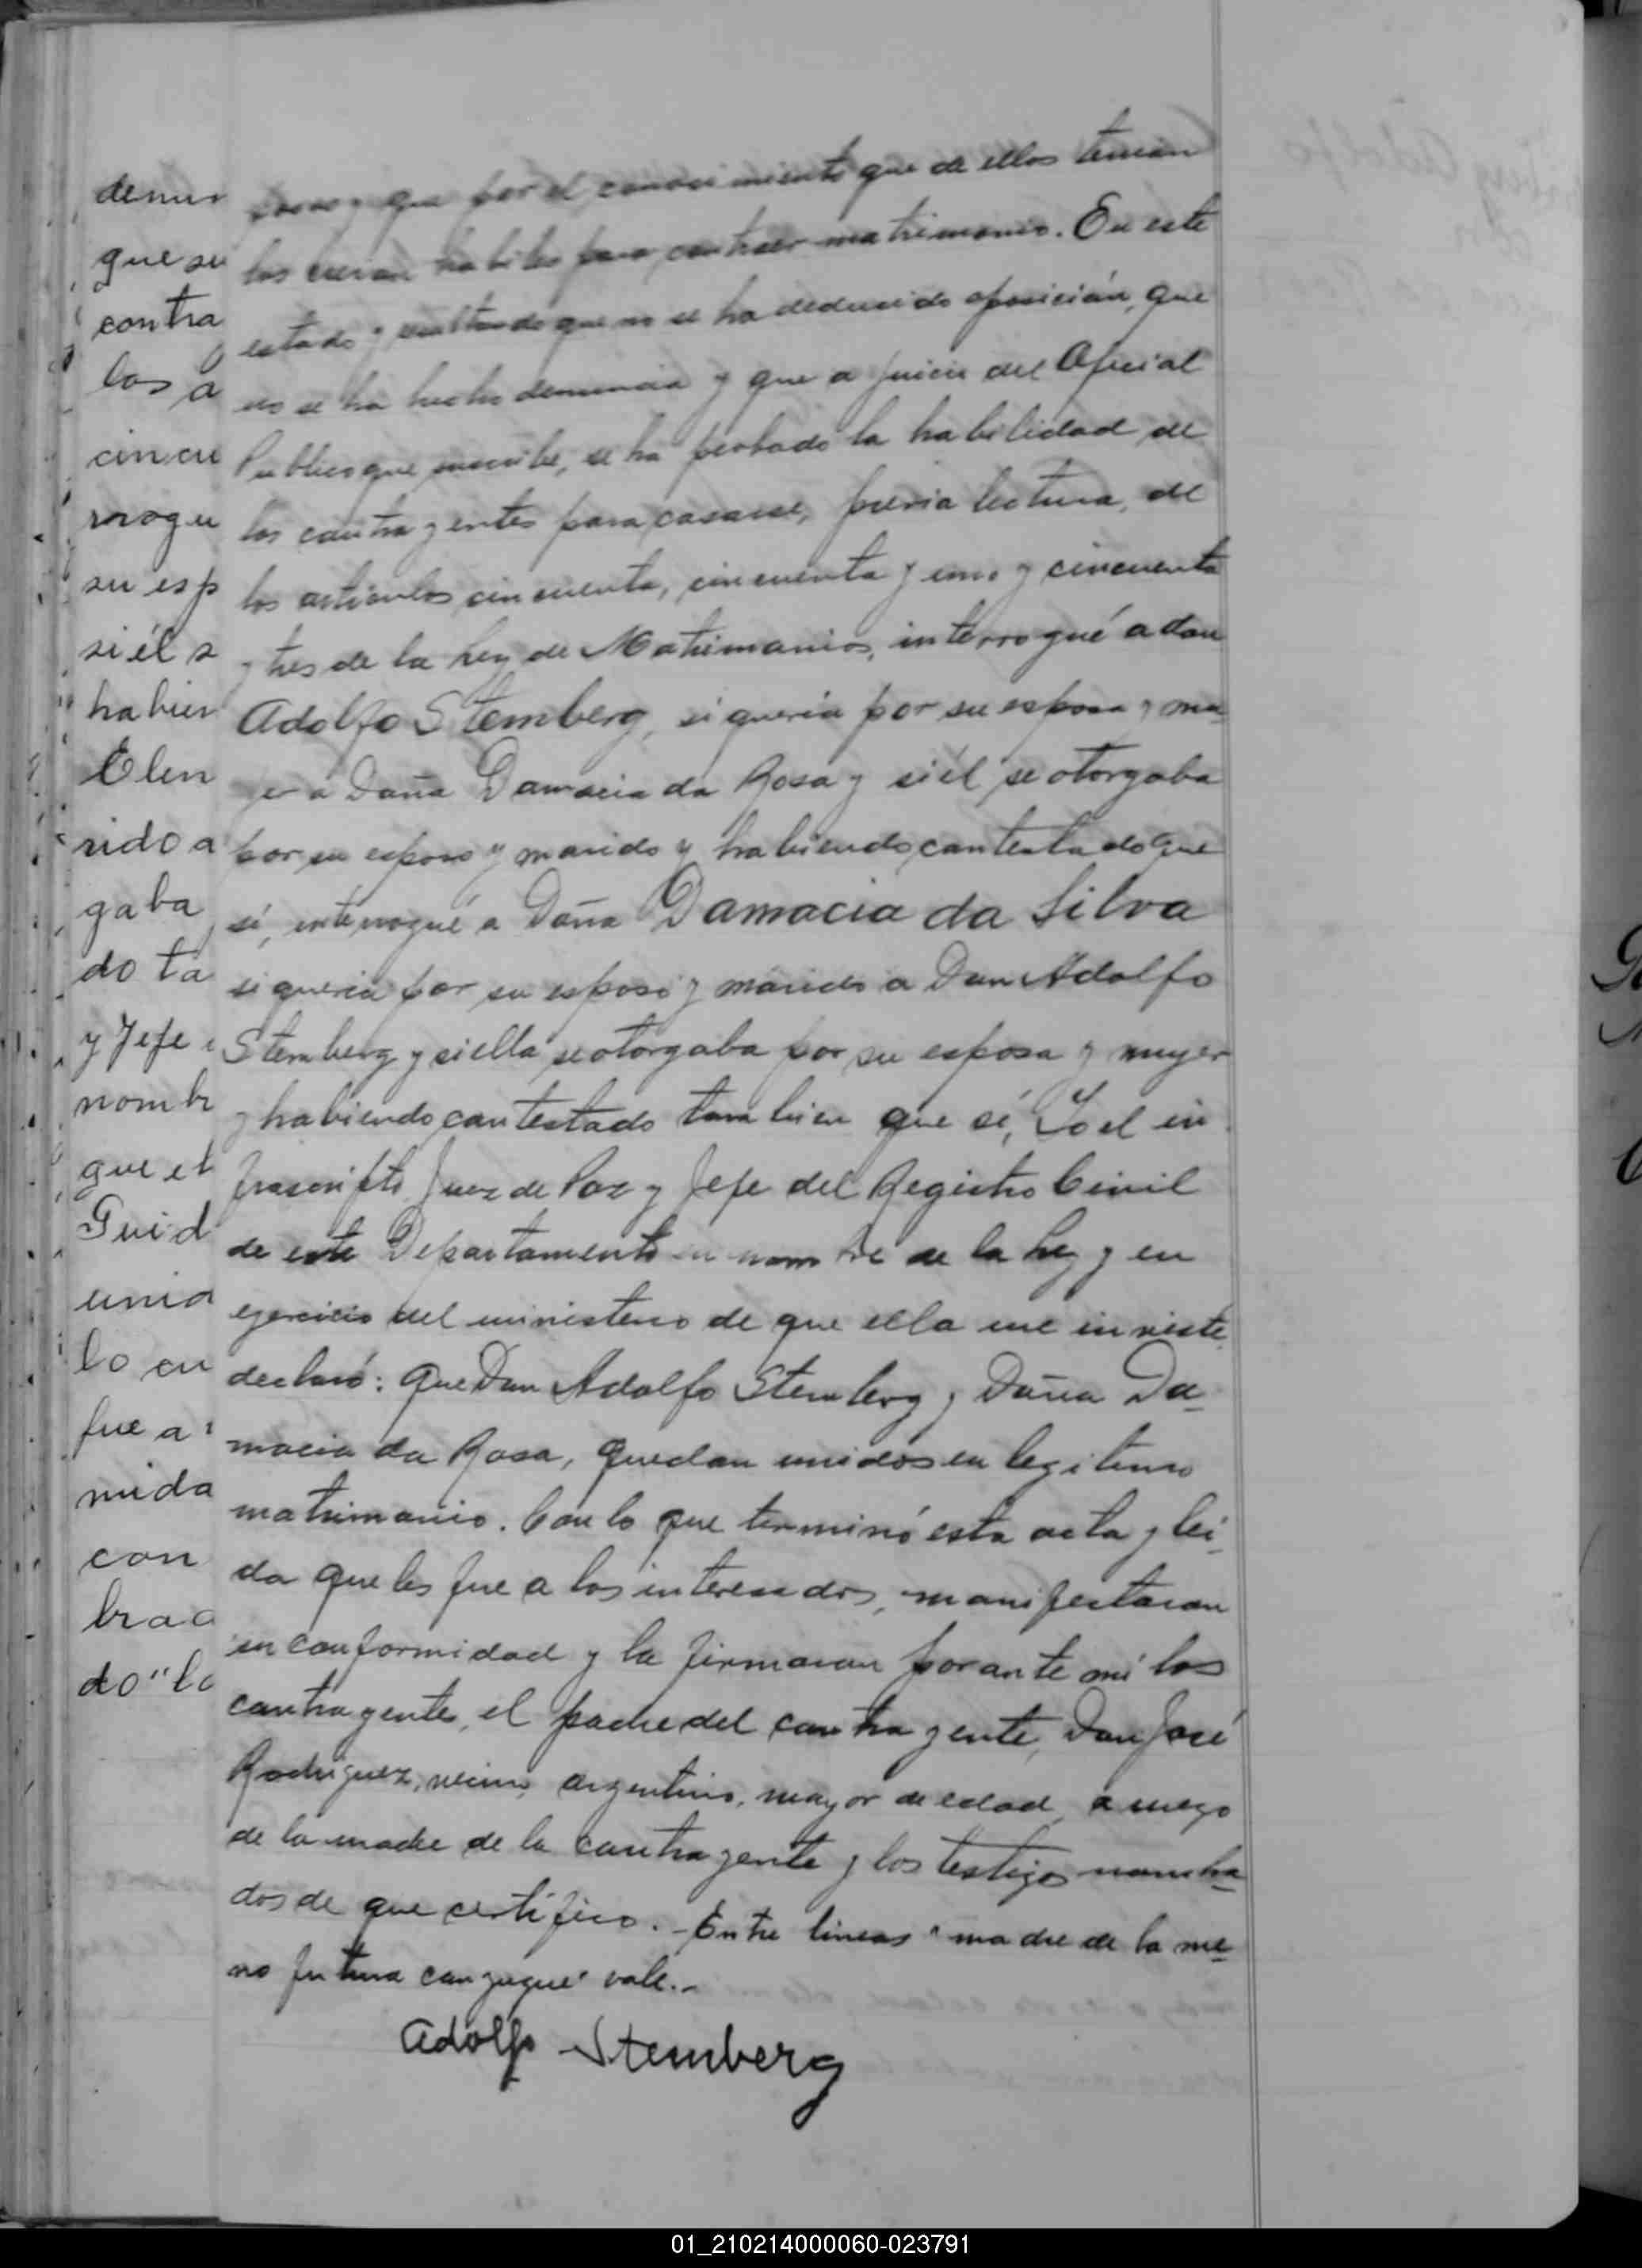 demun
que su
contra
los a
cincu
rrogu
su esp
si él s
habien
Elen
rido a
gaba
do ta
y Jefe
nomb
que el
Guid
unid
lo cu
fue a
mida
con
brad
do "lo
y que por el conocimiento que de ellos tenian
los creian habiles para contraer matrimonio. En este
estado y resultando que no se ha deducido oposición, que
no se ha hecho denuncia y que a juicio del Oficial
Publico que suscribe, se ha probado la habilidad de
los contrayentes para casarse, previa lectura, de
los articulos cincuenta, cincuenta y uno y cincuenta
y tres de la Ley de Matrimonios, interrogué a don
Adolfo Stemberg, si queria por su esposa y mu-
jer a Doña Damacia da Rosa y si él se otorgaba
por su esposo y marido y habiendo contestado que
sí, interrogué a Doña Damacia da Silva
si queria por su esposo y marido a Don Adolfo
Stemberg y si ella se otorgaba por su esposa y mujer
y habiendo contestado tambien que sí, Yo el in
frascripto Juez de Paz y Jefe del Registro Civil
de este Departamento en nombre de la Ley y en
ejercicio del ministerio de que ella me inviste,
declaró: Que Don Adolfo Stemberg y Doña Da-
macia da Rosa, quedan unidos en legitimo
matrimonio. Con lo que terminó esta acta y lei-
da que les fue a los interesados, manifestaron
su conformidad y la firmaron por ante mi los
contrayentes, el padre del contrayente, Don José
Rodriguez, vecino, argentino, mayor de edad, a ruego
de la madre de la contrayente y los testigos nombra-
dos de que certifico. - Entre lineas "madre de la me-
no futura conyugue" vale.-
Adolfo Stemberg
01_210214000060-023791